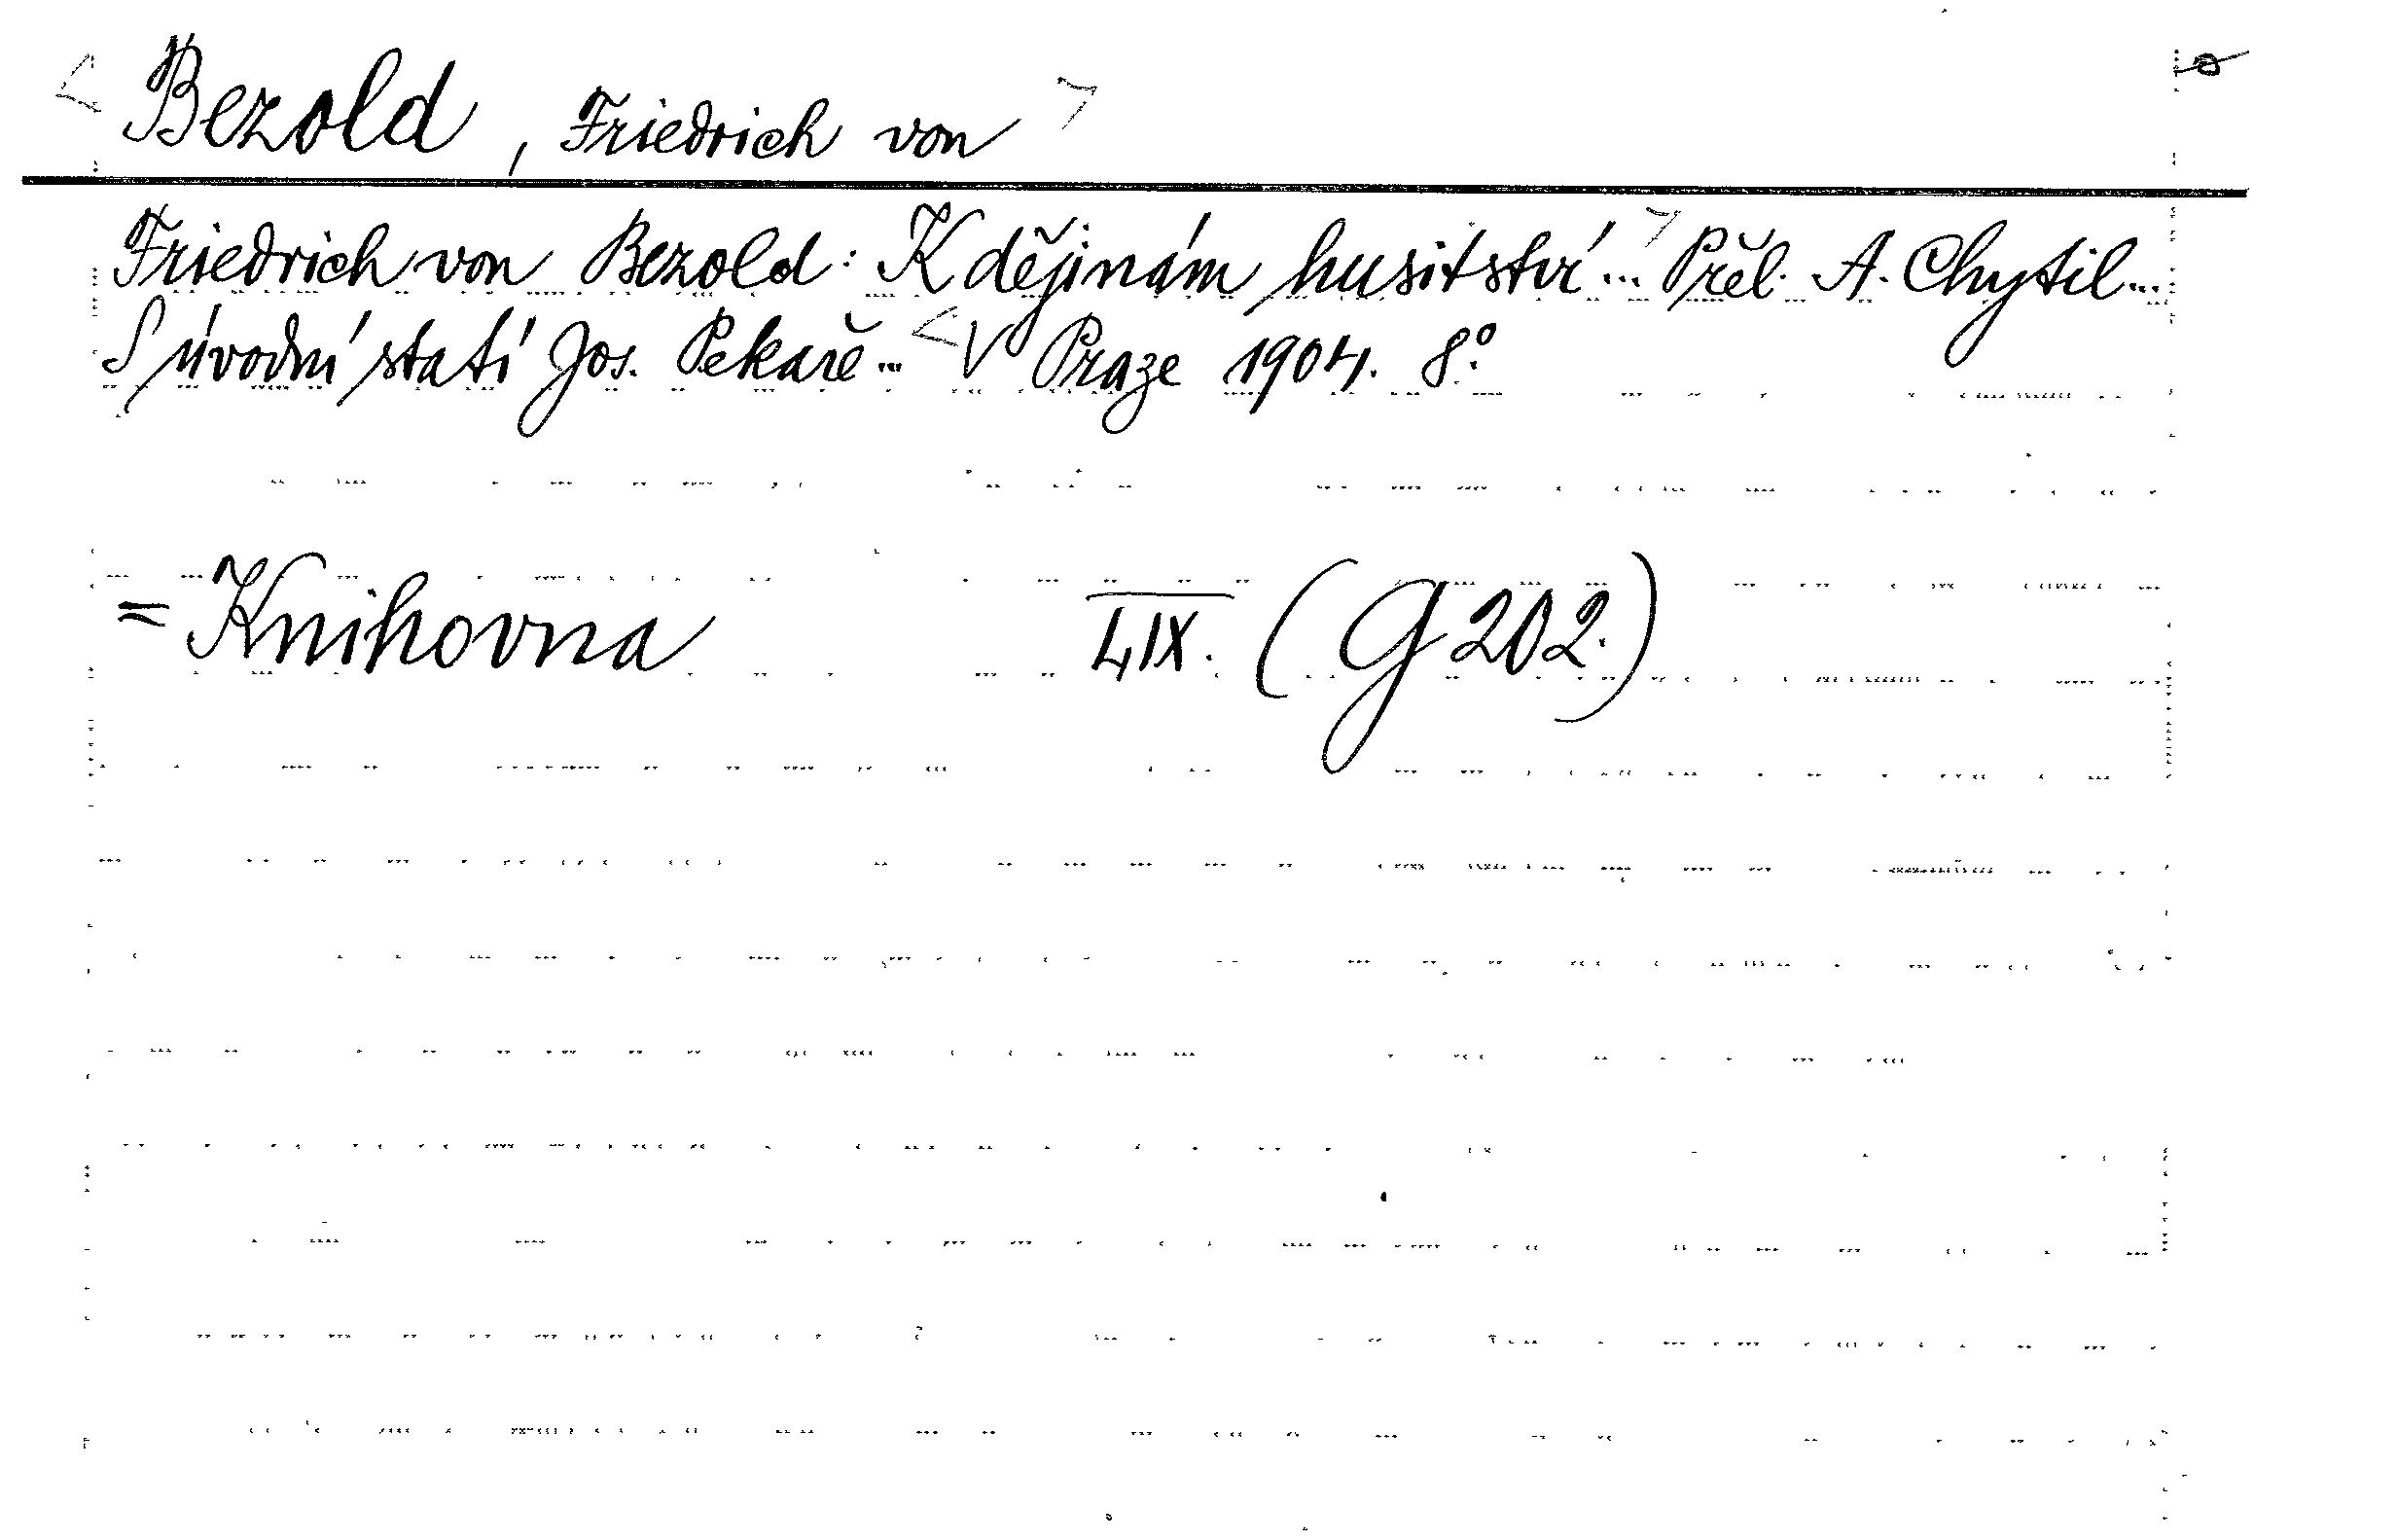 < Bezold, Friedrich von >
Friedrich von Bezold: K dějinám husitství...> Přel. A. Chytil...
S úvodní statí Jos. Pekaře... < V Praze 1904. 8°.
= Knihovna LIX. (G 202.)